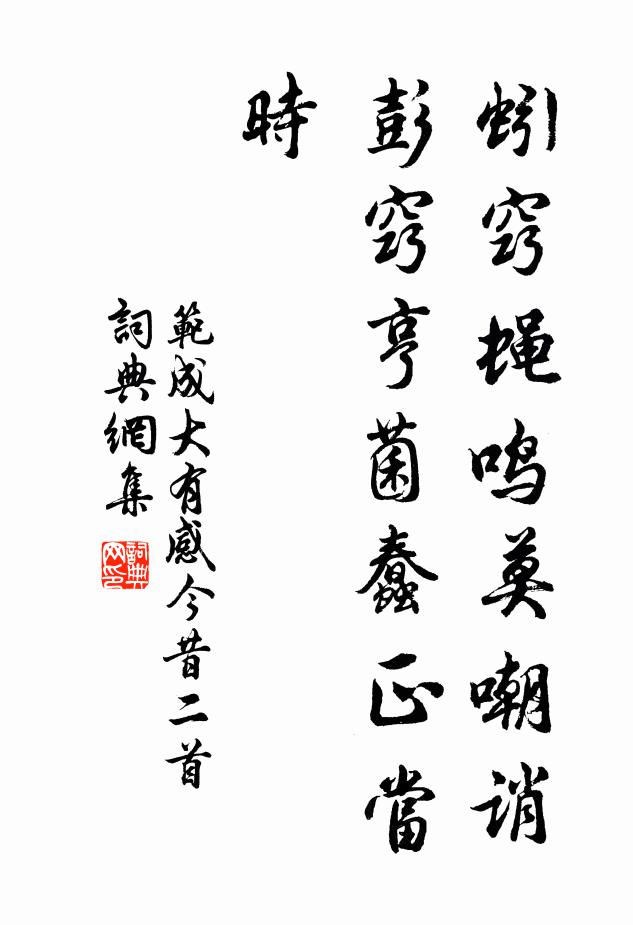 蚓窍蝇鸣莫嘲誚
彭窍亨菌蠢正當
時
範成大有感今昔二首
詞典網集
詞典
网印